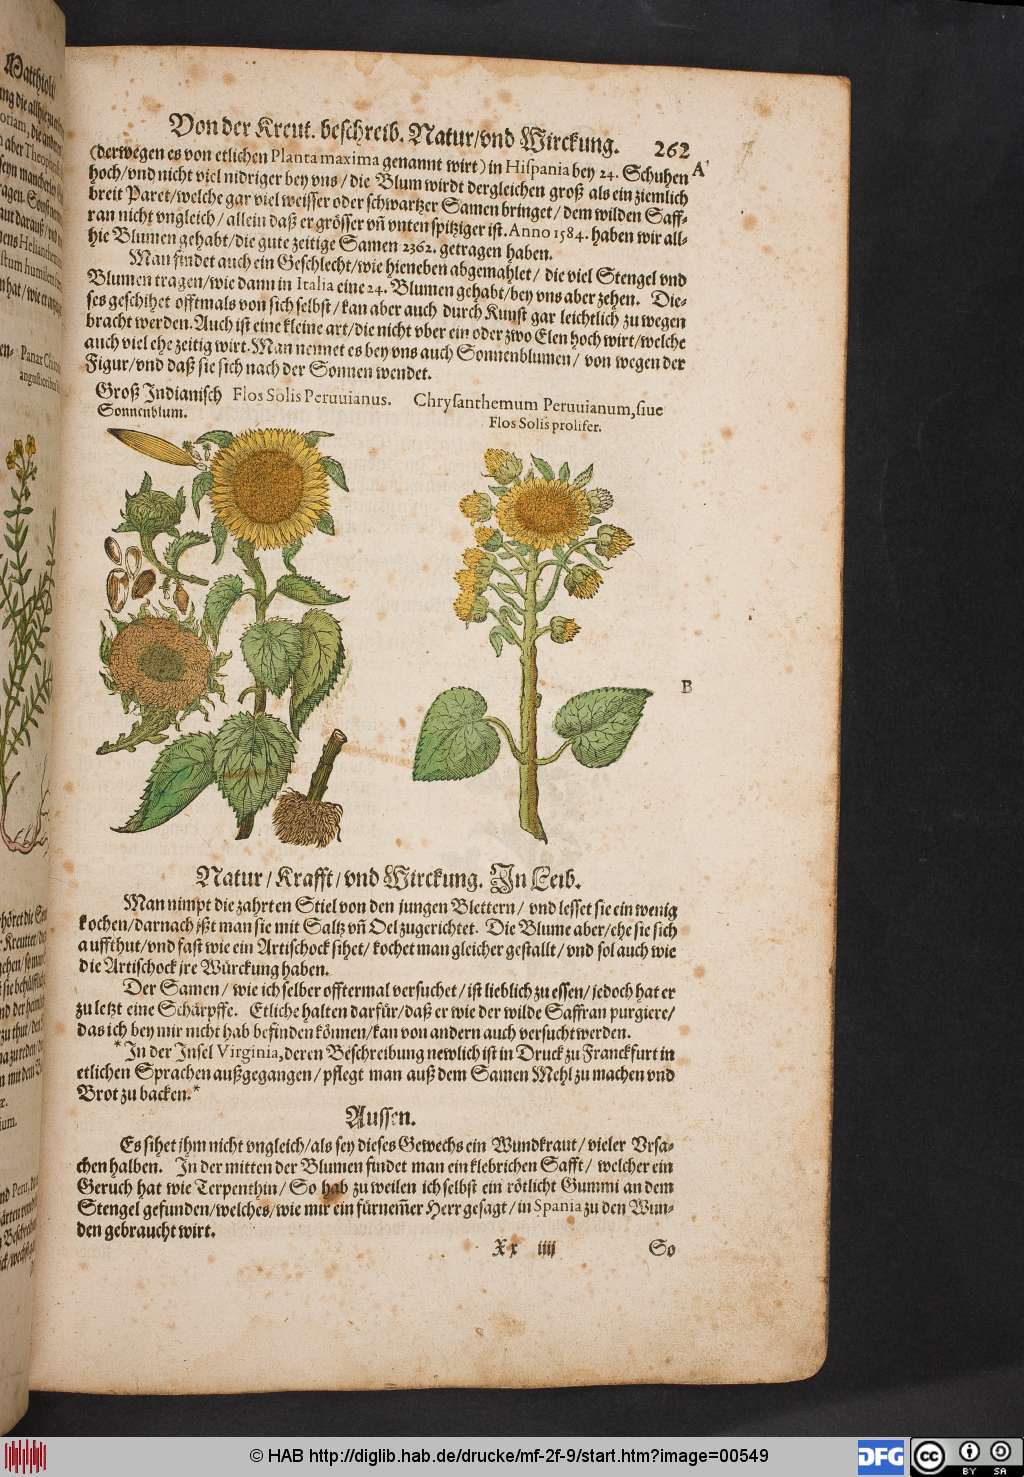 Von der Kreut. beschreib. Natur/vnd Wirckung. 262
(derwegen es von etlichen Planta maxima genannt wirt) in Hispania bey 24. Schuhen A
hoch/vnd nicht viel nidriger bey vns/die Blum wirdt dergleichen groß als ein ziemlich
breit Paret/welche gar viel weisser oder schwartzer Samen bringet/dem wilden Saff-
ran nicht vngleich/allein daß er grösser vñ vnten spitziger ist. Anno 1584. haben wir all-
hie Blumen gehabt/die gute zeitige Samen 2362. getragen haben.
Man findet auch ein Geschlecht/wie hieneben abgemahlet/ die viel Stengel vnd
Blumen tragen/wie dann in Italia eine 24. Blumen gehabt/bey vns aber zehen. Die-
ses geschihet offtmals von sich selbst/kan aber auch durch Kunst gar leichtlich zu wegen
bracht werden. Auch ist eine kleine art/die nicht vber ein oder zwo Elen hoch wirt/welche
auch viel ehe zeitig wirt. Man nennet es bey vns auch Sonnenblumen/ von wegen der
Figur/vnd daß sie sich nach der Sonnen wendet.
Groß Indianisch Flos Solis Peruuianus.
Sonnenblum.
Chrysanthemum Peruuianum, siue
Flos Solis prolifer.
B
Natur/Krafft/vnd Wirckung. In Leib.
Man nimpt die zahrten Stiel von den jungen Blettern/ vnd lesset sie ein wenig
kochen/darnach ißt man sie mit Saltz vñ Oel zugerichtet. Die Blume aber/ehe sie sich
auffthut/vnd fast wie ein Artischock sihet/kochet man gleicher gestallt/vnd sol auch wie
die Artischock jre Würckung haben.
Der Samen/ wie ich selber offtermal versuchet/ist lieblich zu essen/jedoch hat er
zu letzt eine Schärpffe. Etliche halten darfür/daß er wie der wilde Saffran purgiere/
das ich bey mir nicht hab befinden können/kan von andern auch versucht werden.
*In der Insel Virginia, deren Beschreibung newlich ist in Druck zu Franckfurt in
etlichen Sprachen außgegangen/pflegt man auß dem Samen Mehl zu machen vnd
Brot zu backen.*
Aussen.
Es sihet ihm nicht vngleich/als sey dieses Gewechs ein Wundkraut/vieler Vrsa-
chen halben. In der mitten der Blumen findet man ein klebrichen Safft/ welcher ein
Geruch hat wie Terpenthin/So hab zu weilen ich selbst ein rötlicht Gummi an dem
Stengel gefunden/welches/wie mir ein fürnem̃er Herr gesagt/in Spania zu den Wun-
den gebraucht wirt.
Xx iiij So
© HAB http://diglib.hab.de/drucke/mf-2f-9/start.htm?image=00549
DFG
cc BY SA